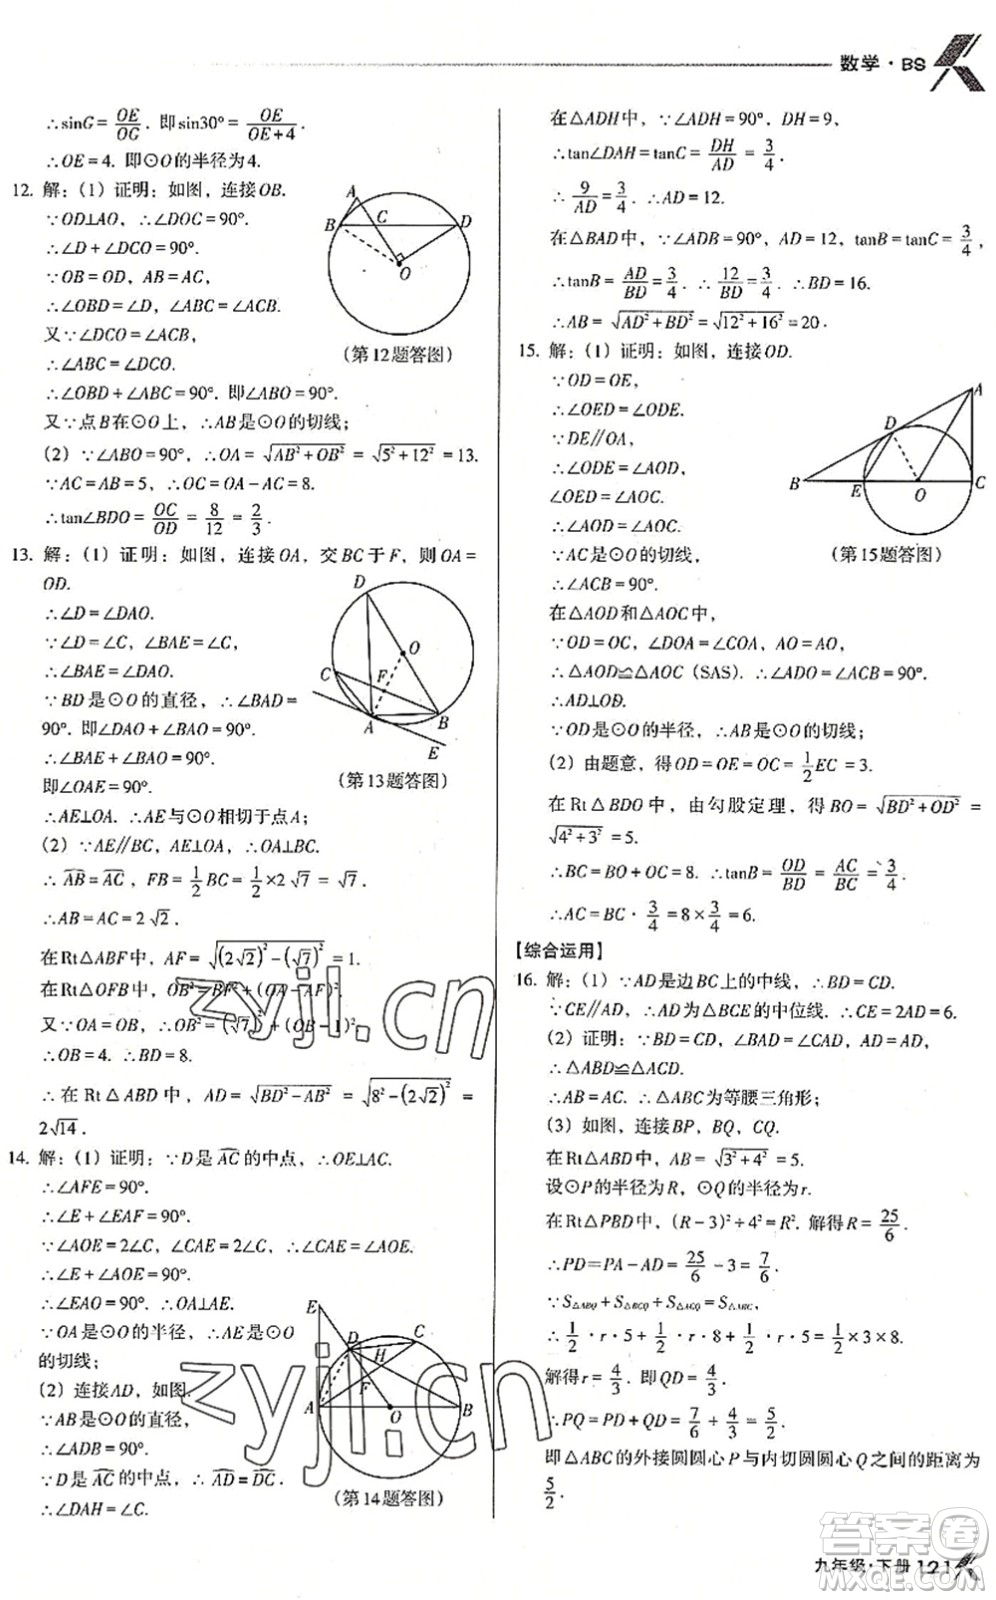 数学·BS
∴sinG=OE/OG. 即sin30°=OE/(OE+4).
∴OE=4. 即⊙O的半径为4.
12. 解：(1) 证明：如图，连接OB.
∵OD⊥AO，∴∠DOC=90°.
∴∠D+∠DCO=90°.
∵OB=OD，AB=AC，
∴∠OBD=∠D，∠ABC=∠ACB.
又∵∠DCO=∠ACB，
∴∠ABC=∠DCO.
∴∠OBD+∠ABC=90°. 即∠ABO=90°.
又∵点B在⊙O上，∴AB是⊙O的切线；
(2) ∵∠ABO=90°，∴OA=√(AB²+OB²)=√(5²+12²)=13.
∵AC=AB=5，∴OC=OA-AC=8.
∴tan∠BDO=OC/OD=8/12=2/3.
A B C D O
(第12题答图)
13. 解：(1) 证明：如图，连接OA，交BC于F，则OA=
OD.
∴∠D=∠DAO.
∵∠D=∠C，∠BAE=∠C，
∴∠BAE=∠DAO.
∵BD是⊙O的直径，∴∠BAD=
90°. 即∠DAO+∠BAO=90°.
∴∠BAE+∠BAO=90°.
即∠OAE=90°.
∴AE⊥OA. ∴AE与⊙O相切于点A；
(2) ∵AE∥BC，AE⊥OA，∴OA⊥BC.
∴⌒AB=⌒AC，FB=1/2BC=1/2×2√7=√7.
∴AB=AC=2√2.
在Rt△ABF中，AF=√((2√2)²-(√7)²)=1.
在Rt△OFB中，OB²=BF²+(OA-AF)².
又∵OA=OB，∴OB²=(√7)²+(OB-1)².
∴OB=4. ∴BD=8.
∴在Rt△ABD中，AD=√(BD²-AB²)=√(8²-(2√2)²)=
2√14.
D O C F A B E
(第13题答图)
14. 解：(1) 证明：∵D是⌒AC的中点，∴OE⊥AC.
∴∠AFE=90°.
∴∠E+∠EAF=90°.
∵∠AOE=2∠C，∠CAE=2∠C，∴∠CAE=∠AOE.
∴∠E+∠AOE=90°.
∴∠EAO=90°. ∴OA⊥AE.
∵OA是⊙O的半径，∴AE是⊙O
的切线；
(2) 连接AD，如图.
∵AB是⊙O的直径，
∴∠ADB=90°.
∵D是⌒AC的中点，∴⌒AD=⌒DC.
∴∠DAH=∠C.
E D C H F A O B
(第14题答图)
在△ADH中，∵∠ADH=90°，DH=9，
∴tan∠DAH=tanC=DH/AD=3/4.
∴9/AD=3/4. ∴AD=12.
在△BAD中，∵∠ADB=90°，AD=12，tanB=tanC=3/4，
∴tanB=AD/BD=3/4. ∴12/BD=3/4. ∴BD=16.
∴AB=√(AD²+BD²)=√(12²+16²)=20.
15. 解：(1) 证明：如图，连接OD.
∵OD=OE，
∴∠OED=∠ODE.
∵DE∥OA，
∴∠ODE=∠AOD，
∠OED=∠AOC.
∴∠AOD=∠AOC.
∵AC是⊙O的切线，
∴∠ACB=90°.
在△AOD和△AOC中，
∵OD=OC，∠DOA=∠COA，AO=AO，
∴△AOD≌△AOC (SAS). ∴∠ADO=∠ACB=90°.
∴AD⊥OD.
∵OD是⊙O的半径，∴AB是⊙O的切线；
(2) 由题意，得OD=OE=OC=1/2EC=3.
在Rt△BDO中，由勾股定理，得BO=√(BD²+OD²)=
√(4²+3²)=5.
∴BC=BO+OC=8. ∴tanB=OD/BD=AC/BC=3/4.
∴AC=BC·3/4=8×3/4=6.
A D B E O C
(第15题答图)
【综合运用】
16. 解：(1) ∵AD是边BC上的中线，∴BD=CD.
∵CE∥AD，∴AD为△BCE的中位线. ∴CE=2AD=6.
(2) 证明：∵BD=CD，∠ADB=∠ADC，AD=AD，
∴△ABD≌△ACD.
∴AB=AC. ∴△ABC为等腰三角形；
(3) 如图，连接BP，BQ，CQ.
在Rt△ABD中，AB=√(3²+4²)=5.
设⊙P的半径为R，⊙Q的半径为r.
在Rt△PBD中，(R-3)²+4²=R². 解得R=25/6.
∴PD=PA-AD=25/6-3=7/6.
∵S△ABQ+S△BCQ+S△ACQ=S△ABC，
∴1/2·r·5+1/2·r·8+1/2·r·5=1/2×3×8.
解得r=4/3. 即QD=4/3.
∴PQ=PD+QD=7/6+4/3=5/2.
即△ABC的外接圆圆心P与内切圆圆心Q之间的距离为
5/2.
zyjl.cn
zyjl.cn
答案圈
MXQE.COM
九年级·下册 121